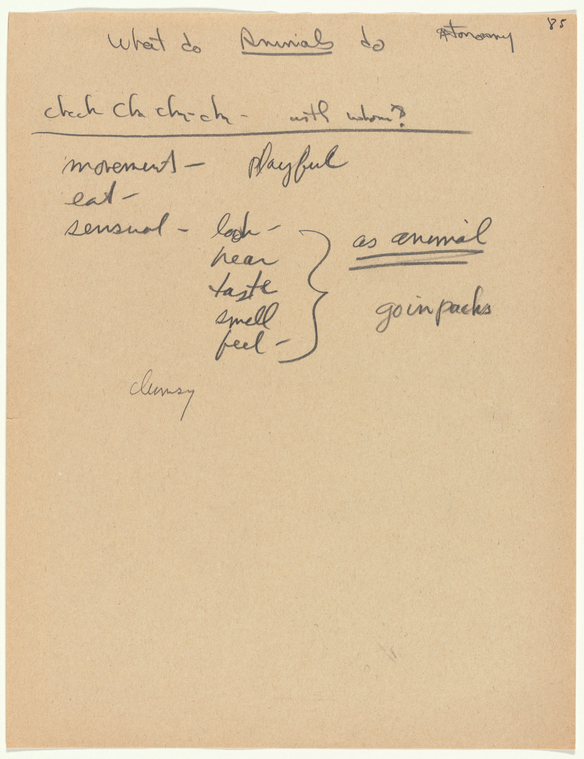 '85
What do Animals do
ch-ch- - with whom?
movement - playful
eat -
sensual - look -
hear
taste
smell
feel -
as animal
go in packs
clumsy